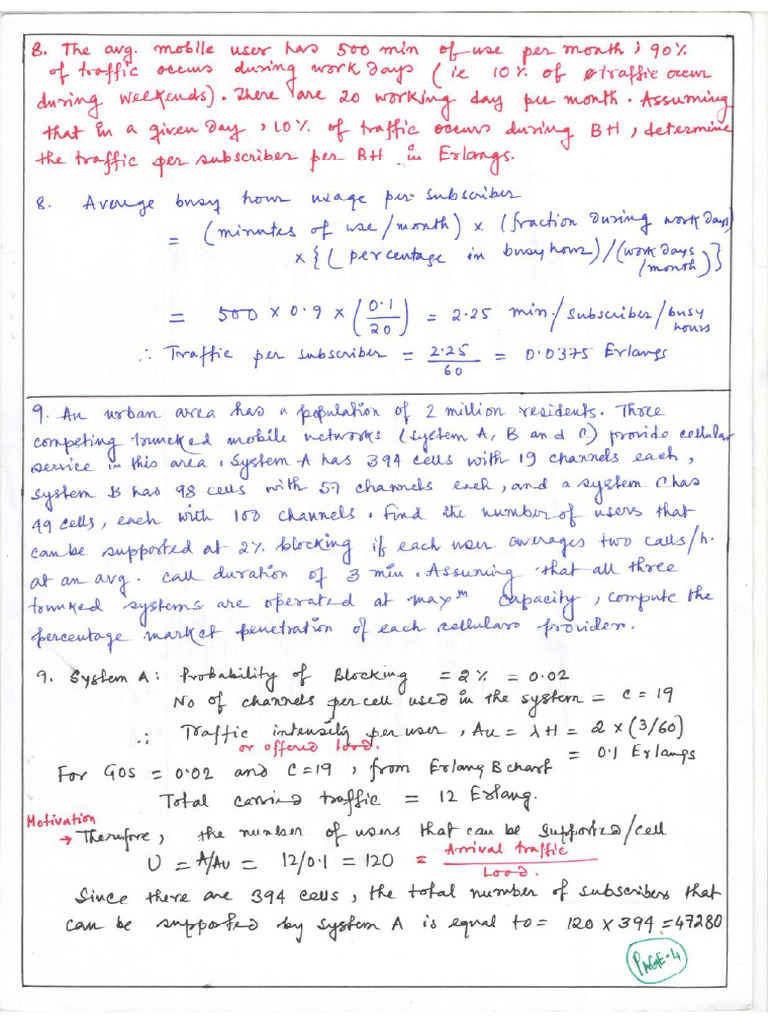 8. The avg. mobile user has 500 min of use per month, 90%
of traffic occurs during work days (ie 10% of traffic occur
during weekends). There are 20 working day per month. Assuming
that in a given day, 10% of traffic occurs during BH, determine
the traffic per subscriber per BH in Erlangs.
8. Average busy hour usage per subscriber
= (minutes of use/month) × (fraction during work days)
× {(percentage in busy hour)/(work days
/month)}
= 500 × 0.9 × (0.1/20) = 2.25 min./subscriber/busy
hours
∴ Traffic per subscriber = 2.25/60 = 0.0375 Erlangs
9. An urban area has a population of 2 million residents. Three
competing truncked mobile networks (system A, B and C) provide cellular
service in this area. System A has 394 cells with 19 channels each,
system B has 98 cells with 57 channels each, and a system C has
49 cells, each with 100 channels. Find the number of users that
can be supported at 2% blocking if each user averages two calls/h.
at an avg. call duration of 3 min. Assuming that all three
trunked systems are operated at max^m capacity, compute the
percentage market penetration of each cellular provider.
9. System A: Probability of Blocking = 2% = 0.02
No of channels per cell used in the system = C = 19
∴ Traffic intensity per user, Au = λH = 2 × (3/60)
or offered load.
= 0.1 Erlangs
For GOS = 0.02 and C=19, from Erlang B chart
Total carried traffic = 12 Erlang.
Motivation
→ Therefore, the number of users that can be supported/cell
U = A/Au = 12/0.1 = 120 = Arrival traffic/Load.
Since there are 394 cells, the total number of subscribers that
can be supported by system A is equal to = 120 × 394 = 47280
PAGE-4